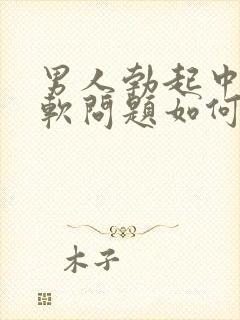 男人勃起中
軟問題如何
木子